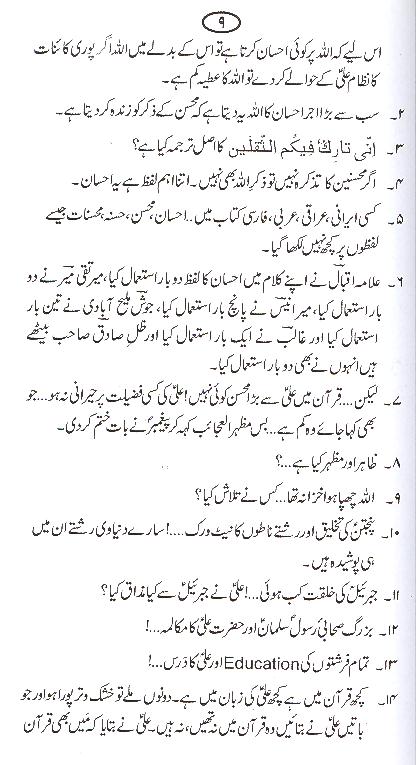 ۹
اس لیے کہ اللہ پر کوئی احسان کرتا ہے تو اس کے بدلے میں اللہ اگر پوری کائنات
کا نظام علیؑ کے حوالے کر دے تو اللہ کا عطیہ کم ہے۔
۲۔ سب سے بڑا اجر احسان کا اللہ یہ دیتا ہے کہ محسن کے ذکر کو زندہ کر دیتا ہے۔
۳۔ اِنِّی تَارِکٌ فِیکُم الثَّقلَین کا اصل ترجمہ کیا ہے؟
۴۔ اگر محسنین کا تذکرہ نہیں تو ذکرِ اللہ بھی نہیں۔ اتنا اہم لفظ ہے یہ احسان۔
۵۔ کسی ایرانی، عراقی، عربی، فارسی کتاب میں.. احسان، محسن، حسنہ، محسنات جیسے
لفظوں پر کچھ نہیں لکھا گیا۔
۶۔ علامہ اقبالؔ نے اپنے کلام میں احسان کا لفظ دو بار استعمال کیا، میر تقی میرؔ نے دو
بار استعمال کیا، میر انیسؔ نے پانچ بار استعمال کیا، جوشؔ ملیح آبادی نے تین بار
استعمال کیا اور غالبؔ نے ایک بار استعمال کیا اور ظلِ صادق صاحب بیٹھے
ہیں انہوں نے بھی دو بار استعمال کیا۔
۷۔ لیکن.... قرآن میں علیؑ سے بڑا محسن کوئی نہیں! علیؑ کی کسی فضیلت پر حیرانی نہ ہو... جو
بھی کہا جائے وہ کم ہے... بس مظہر العجائب کہہ کر پیغمبرؐ نے بات ختم کر دی۔
۸۔ ظاہر اور مظہر کیا ہے...؟
۹۔ اللہ چھپا ہوا خزانہ تھا... کس نے تلاش کیا؟
۱۰۔ پنجتنؑ کی تخلیق اور رشتے ناطوں کا نیٹ ورک....! سارے دنیاوی رشتے ان میں
ہی پوشیدہ ہیں۔
۱۱۔ جبرئیلؑ کی خلقت کب ہوئی...! علیؑ نے جبرئیلؑ سے کیا مذاق کیا؟
۱۲۔ بزرگ صحابیِ رسولؐ سلمانؑ اور حضرت علیؑ کا مکالمہ...!
۱۳۔ تمام فرشتوں کی Education اور علیؑ کا درس...!
۱۴۔ کچھ قرآن میں ہے کچھ علیؑ کی زبان میں ہے۔ دونوں ملے تو خشک و تر پورا ہوا اور جو
باتیں علیؑ نے بتائیں وہ قرآن میں نہ تھیں، نہ ہیں۔ علیؑ نے بتایا کہ مَیں بھی قرآن